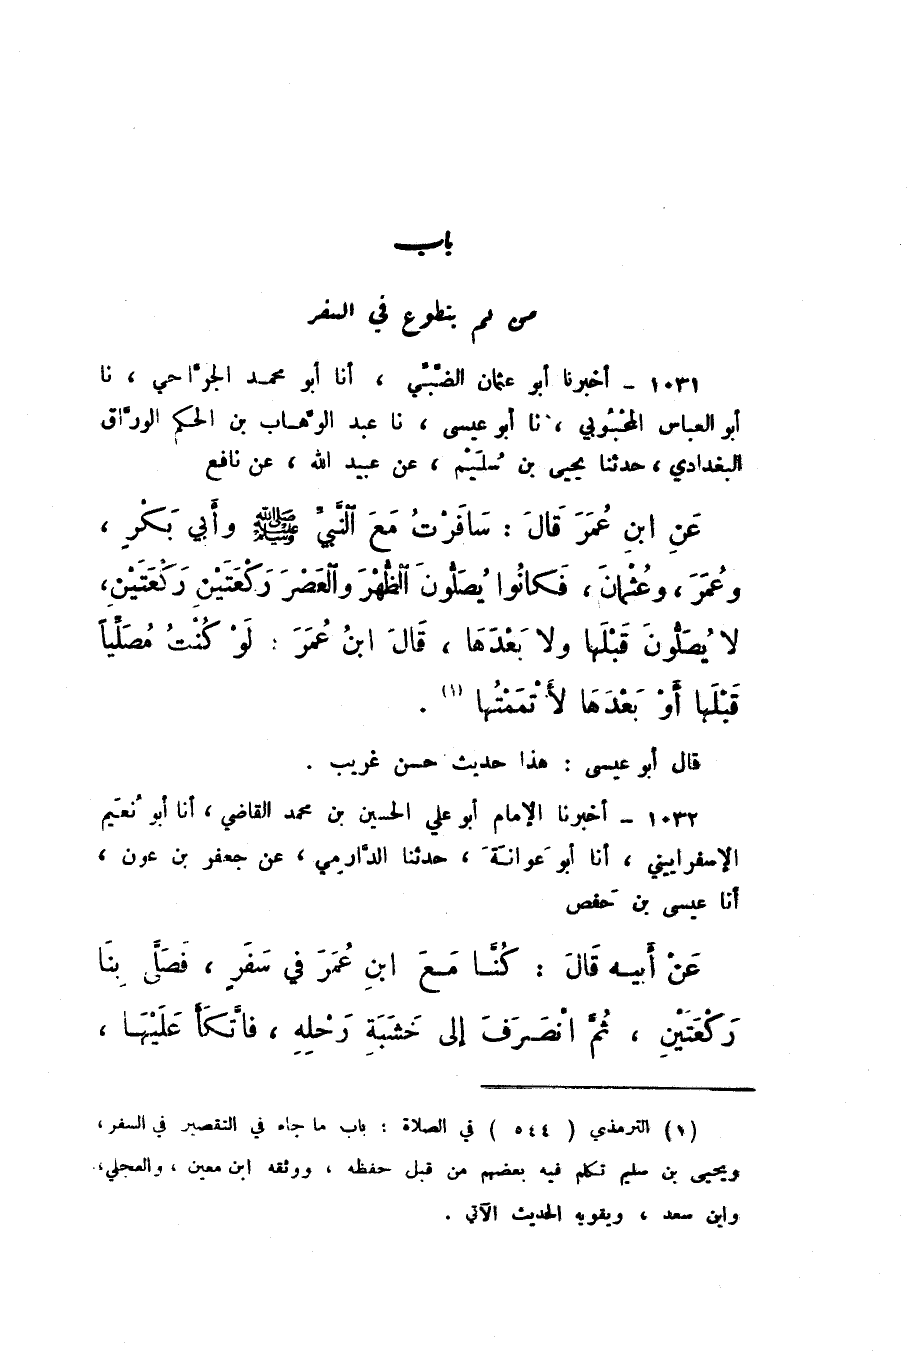 باب
من لم يتطوع في السفر
١٠٣١ – أخبرنا أبو عثمان الضَّبِّي ، أنا أبو محمد الجرَّاحي ، نا
أبو العباس المَحْبُوبي ، نا أبو عيسى ، نا عبد الوهَّاب بن الحكم الورَّاق
البغدادي ، حدثنا يحيى بن سُلَيْم ، عن عبيد الله ، عن نافع
عَنِ ابنِ عُمَرَ قَالَ : سَافَرْتُ مَعَ النَّبيِّ ﷺ وأَبي بَكْرٍ ،
وعُمَرَ ، وعُثْمانَ ، فَكانُوا يُصَلُّونَ الظُّهْرَ والعَصْرَ رَكْعَتَيْنِ رَكْعَتَيْنِ،
لا يُصَلُّونَ قَبْلَها ولا بَعْدَهَا ، قَالَ ابنُ عُمَرَ : لَوْ كُنْتُ مُصَلِّياً
قَبْلَها أَوْ بَعْدَهَا لأَتْمَمْتُها (١) .
قال أبو عيسى : هذا حديث حسن غريب .
١٠٣٢ – أخبرنا الإمام أبو علي الحسين بن محمد القاضي ، أنا أبو نُعَيم
الإسفراييني ، أنا أبو عَوانَة ، حدثنا الدَّارمي ، عن جعفر بن عون ،
أنا عيسى بن حَفص
عَنْ أَبيه قَالَ : كُنَّا مَعَ ابنِ عُمَرَ في سَفَرٍ ، فَصَلَّى بِنَا
رَكْعَتَيْنِ ، ثُمَّ انْصَرَفَ إلى خَشَبَةِ رَحْلِهِ ، فاتَّكَأَ عَلَيْهَا ،
(١) الترمذي ( ٥٤٤ ) في الصلاة : باب ما جاء في التقصير في السفر ،
ويحيى بن سليم تكلم فيه بعضهم من قبل حفظه ، ووثقه ابن معين ، والعجلي،
وابن سعد ، ويقويه الحديث الآتي .